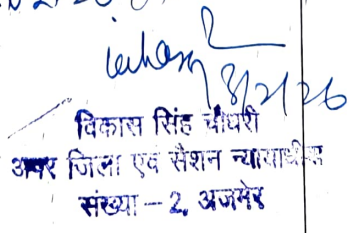 3/2/26
विकास सिंह चौधरी
अपर जिला एवं सैशन न्यायाधीश
संख्या – 2, अजमेर